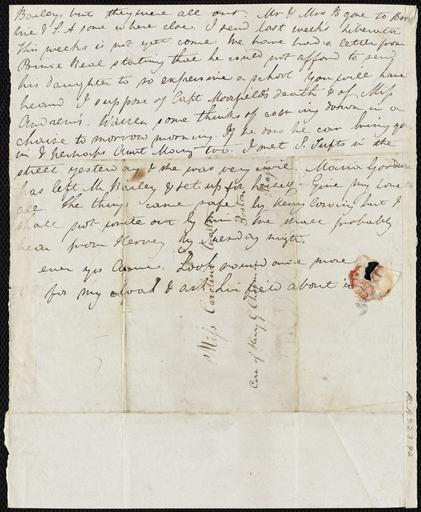 Bailey, but they were all out. Mr & Mrs B gone to
& S. A some where else. I send last week's Liberator
This weeks is not yet come. We have had a letter from
Prince Neal stating that he could not afford to send
his daughter to so expensive a school. You will have
heard I suppose of Capt death & of Miss
Andrews. Warren some thinks of coming down in a
chaise to morrow morning. If he does he can bring you
in & perhaps Aunt Mary too. I met S. Tufts in the
street yesterday & she was very civil. Maria
has left Mr Bailey & set up for herself. Give my love to
all The things came safe by Henry but I
shall not write out by him. We shall probably
hear from Hervey by Tuesday night.
ever yrs Anne. Look round once more
for my cloak & ask about it
Miss Caroline
Care of Henry G Chapman
Boston